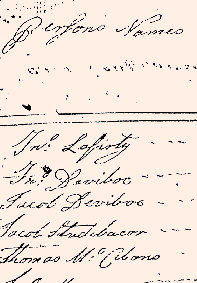 Persons Names
Jno. Laferty
Jno. Deviboc
Jacob Deviboc
Jacob Studebacor
Thomas Mc. Cibons